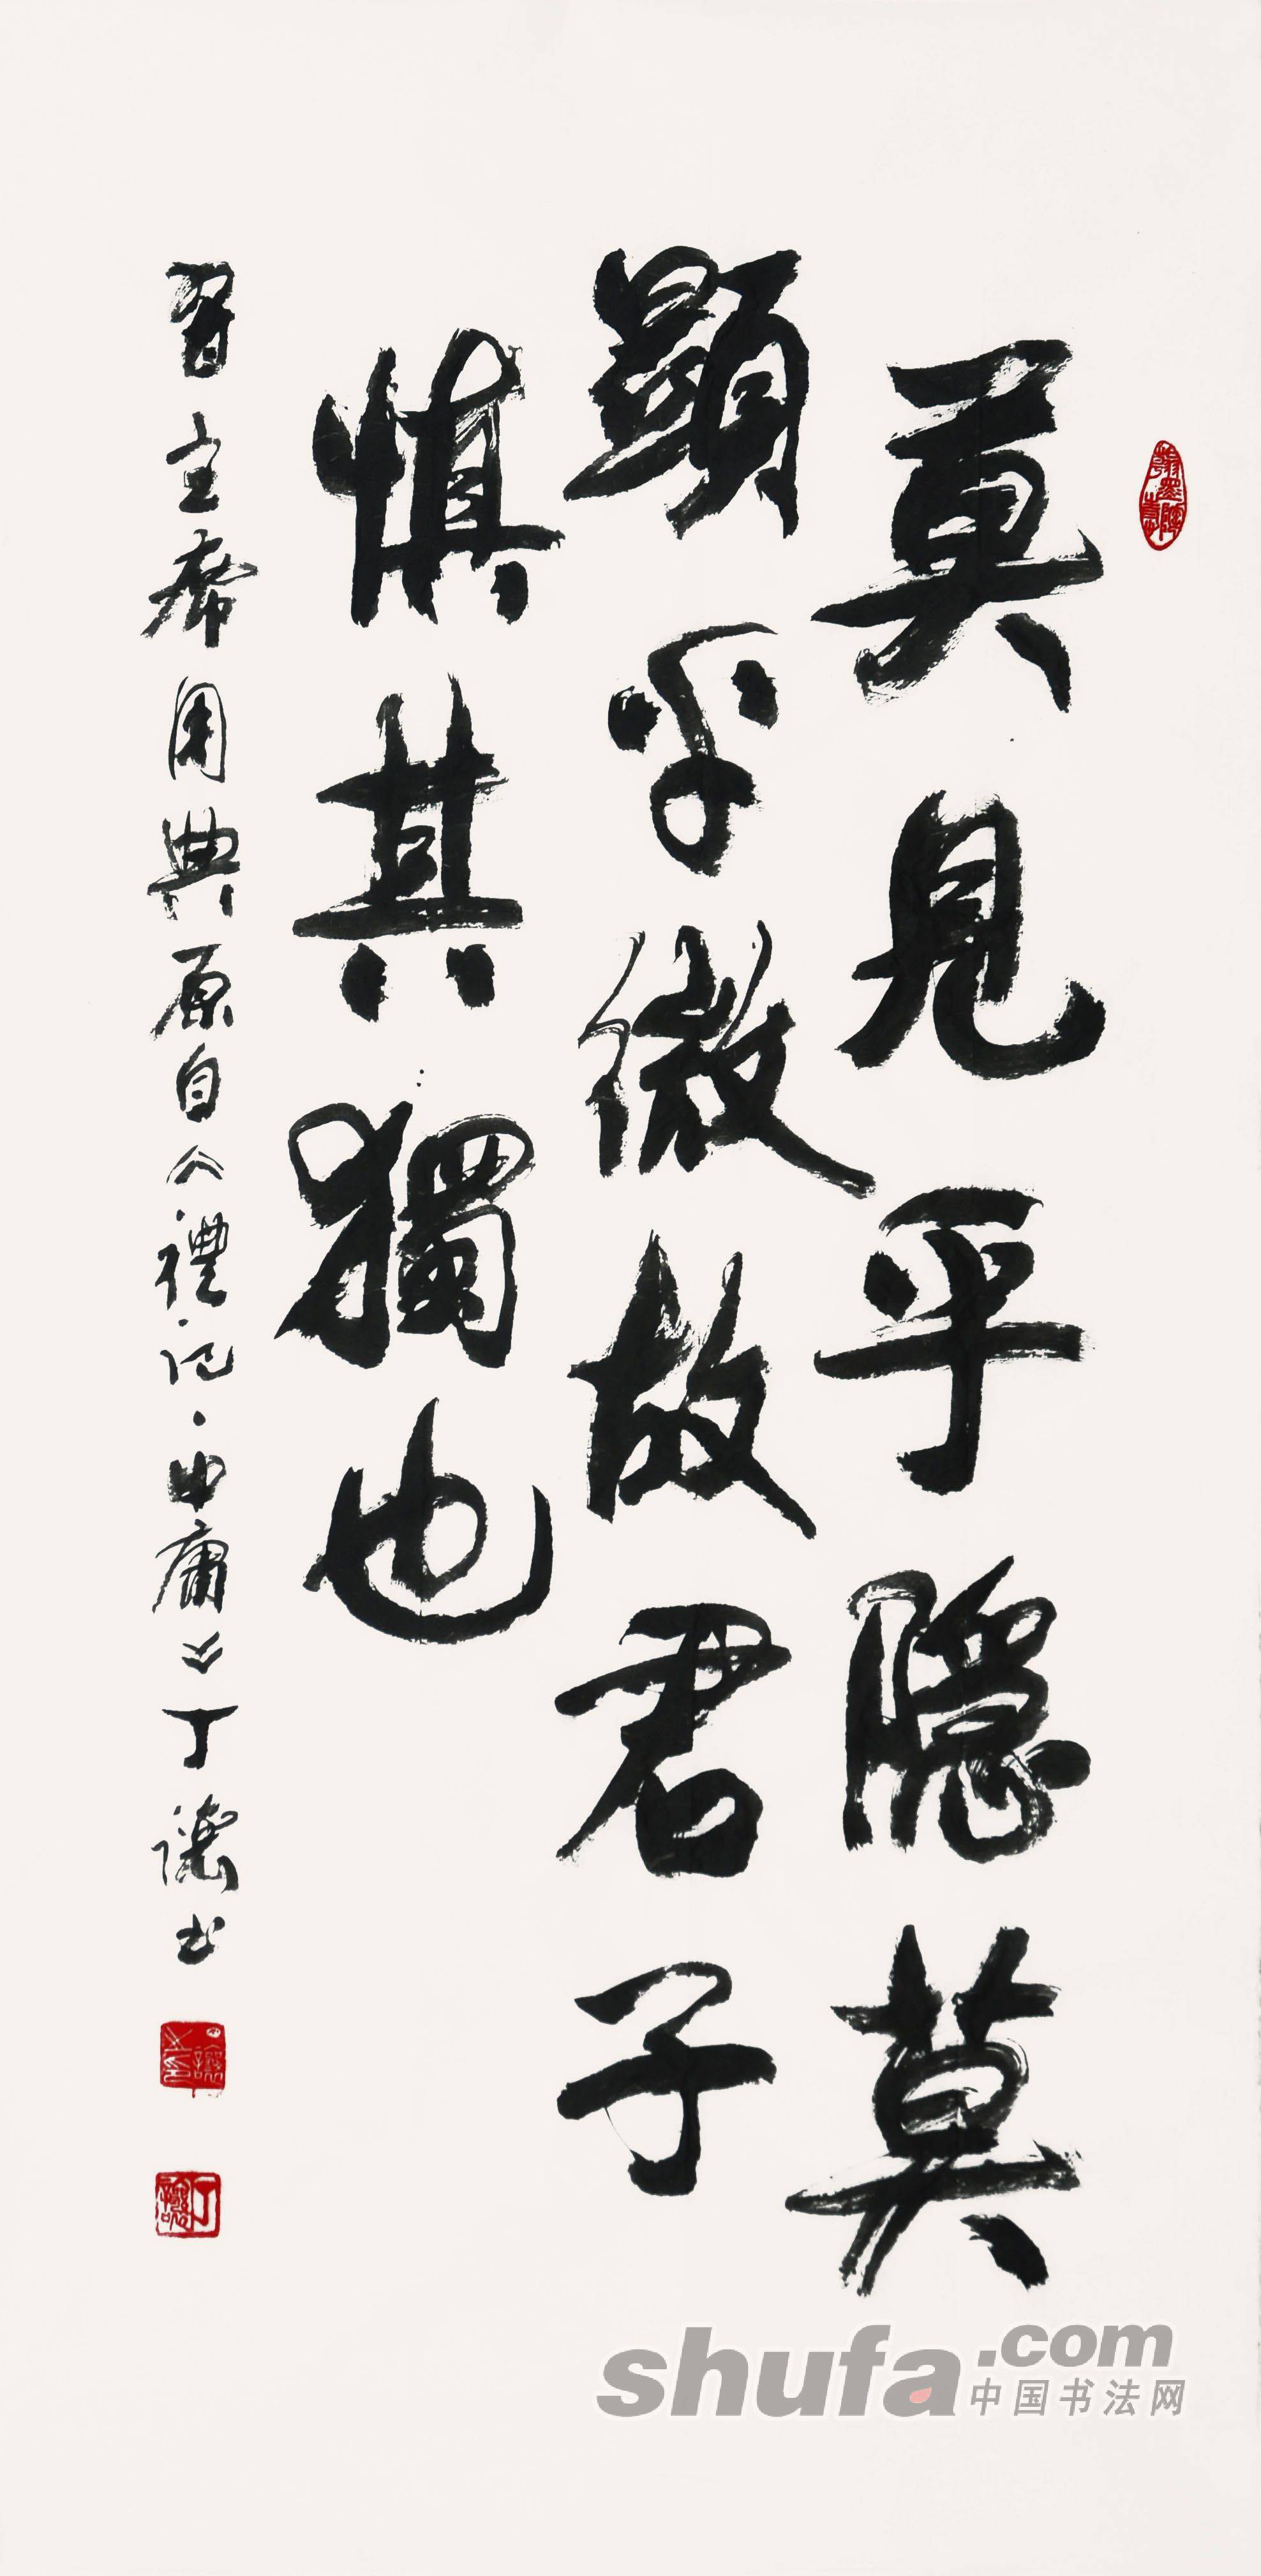 莫見乎隱莫
顯乎微故君子
慎其獨也
習主席用典原自《禮記·中庸》丁讓书
丁讓
shufa.com
中国书法网